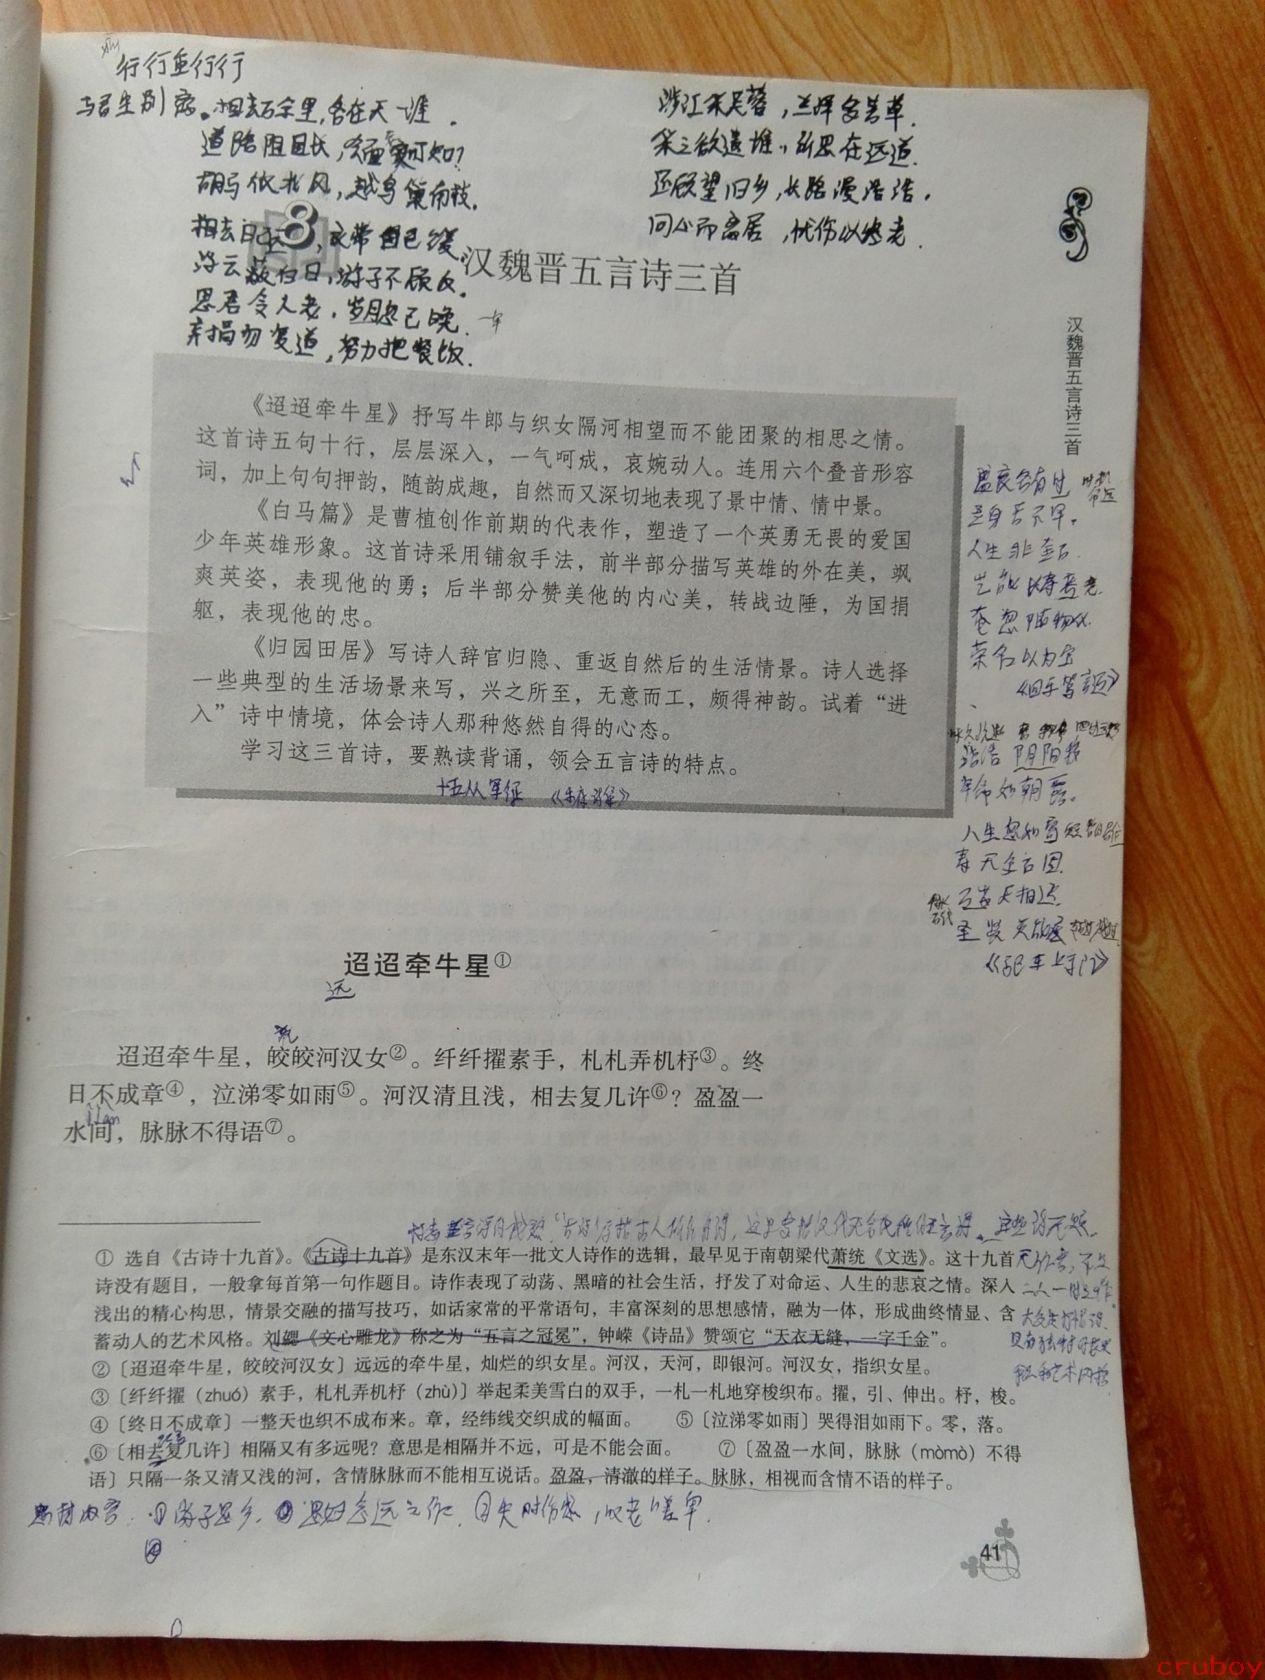 行行重行行
与君生别离。相去万余里,各在天一涯.
道路阻且长,会面安可知?
胡马依北风,越鸟巢南枝.
相去日已远,衣带日已缓.
浮云蔽白日,游子不顾反.
思君令人老,岁月忽已晚.
弃捐勿复道,努力加餐饭.
涉江采芙蓉,兰泽多芳草.
采之欲遗谁,所思在远道.
还顾望旧乡,长路漫浩浩.
同心而离居,忧伤以终老.
8
汉魏晋五言诗三首
汉魏晋五言诗三首
《迢迢牵牛星》抒写牛郎与织女隔河相望而不能团聚的相思之情。
这首诗五句十行,层层深入,一气呵成,哀婉动人。连用六个叠音形容
词,加上句句押韵,随韵成趣,自然而又深切地表现了景中情、情中景。
《白马篇》是曹植创作前期的代表作,塑造了一个英勇无畏的爱国
少年英雄形象。这首诗采用铺叙手法,前半部分描写英雄的外在美,飒
爽英姿,表现他的勇;后半部分赞美他的内心美,转战边陲,为国捐
躯,表现他的忠。
《归园田居》写诗人辞官归隐、重返自然后的生活情景。诗人选择
一些典型的生活场景来写,兴之所至,无意而工,颇得神韵。试着“进
入”诗中情境,体会诗人那种悠然自得的心态。
学习这三首诗,要熟读背诵,领会五言诗的特点。
十五从军征 《乐府诗集》
盛衰各有时
立身苦不早。
人生非金石.
岂能长寿考
奄忽随物化
荣名以为宝
《回车驾言迈》
浩浩阴阳移
年命如朝露。
人生忽如寄
寿无金石固
万岁更相送
圣贤莫能度
《驱车上东门》
迢迢牵牛星①
远
迢迢牵牛星,皎皎河汉女②。纤纤擢素手,札札弄机杼③。终
日不成章④,泣涕零如雨⑤。河汉清且浅,相去复几许⑥?盈盈一
水间,脉脉不得语⑦。
① 选自《古诗十九首》。《古诗十九首》是东汉末年一批文人诗作的选辑,最早见于南朝梁代萧统《文选》。这十九首
诗没有题目,一般拿每首第一句作题目。诗作表现了动荡、黑暗的社会生活,抒发了对命运、人生的悲哀之情。深入
浅出的精心构思,情景交融的描写技巧,如话家常的平常语句,丰富深刻的思想感情,融为一体,形成曲终情显、含
蓄动人的艺术风格。刘勰《文心雕龙》称之为“五言之冠冕”,钟嵘《诗品》赞颂它“天衣无缝,一字千金”。
②〔迢迢牵牛星,皎皎河汉女〕远远的牵牛星,灿烂的织女星。河汉,天河,即银河。河汉女,指织女星。
③〔纤纤擢(zhuó)素手,札札弄机杼(zhù)〕举起柔美雪白的双手,一札一札地穿梭织布。擢,引、伸出。杼,梭。
④〔终日不成章〕一整天也织不成布来。章,经纬线交织成的幅面。 ⑤〔泣涕零如雨〕哭得泪如雨下。零,落。
⑥〔相去复几许〕相隔又有多远呢?意思是相隔并不远,可是不能会面。 ⑦〔盈盈一水间,脉脉(mòmò)不得
语〕只隔一条又清又浅的河,含情脉脉而不能相互说话。盈盈,清澈的样子。脉脉,相视而含情不语的样子。
41
cruboy